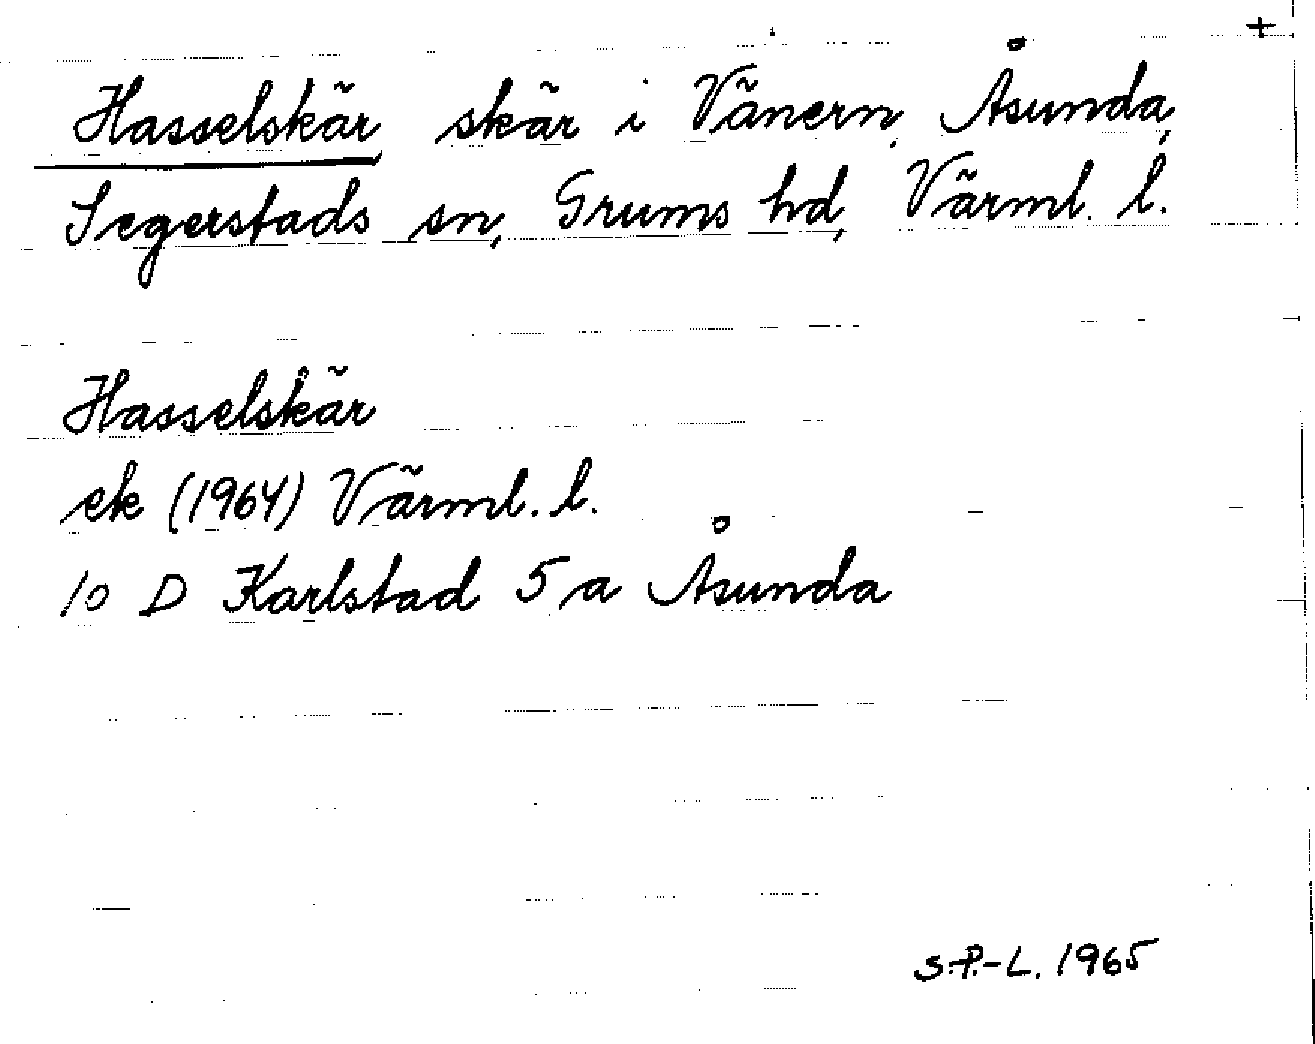 +
Hasselskär skär i Vänern, Åsunda,
Segerstads sn, Grums hd, Värml. l.
Hasselskär
ek (1964) Värml. l.
10 D Karlstad 5 a Åsunda
S.P.-L. 1965